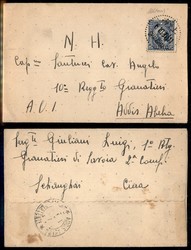 N. H.
Cap= Santucci Cav. Angelo
10= Regg to Granatieri
A. O. I Addis Abeba
Serg te Giuliani Luigi, 1º Btg.
Granatieri di Savoia 2ª Comp.
Schanghai Cina